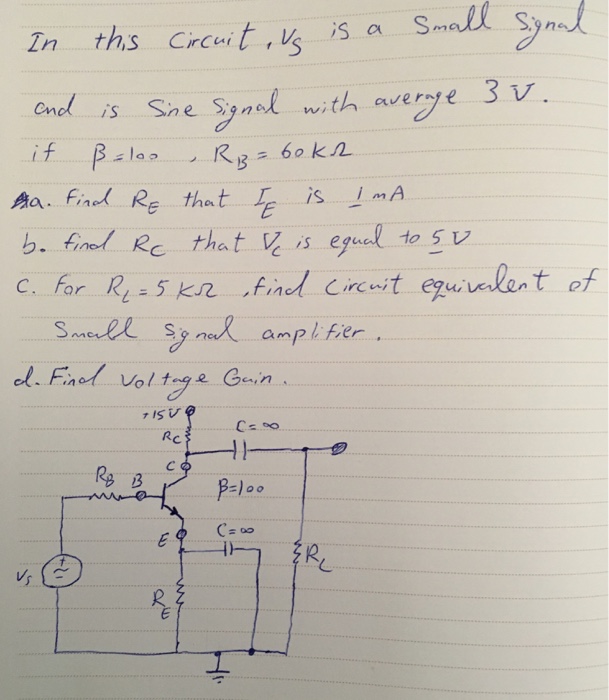 In this Circuit, Vs is a Small Signal
and is Sine Signal with average 3 V.
if β=100 , RB = 60 kΩ
a. find RE that IE is 1 mA
b. find RC that Vc is equal to 5 V
C. For RL = 5 kΩ , find circuit equivalent of
Small Signal amplifier.
d. Find Voltage Gain.
+15V
RC
C=∞
C
RB
B
β=100
E
C=∞
RL
Vs
RE